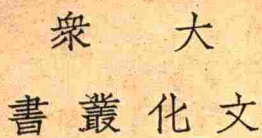 大眾
文化叢書